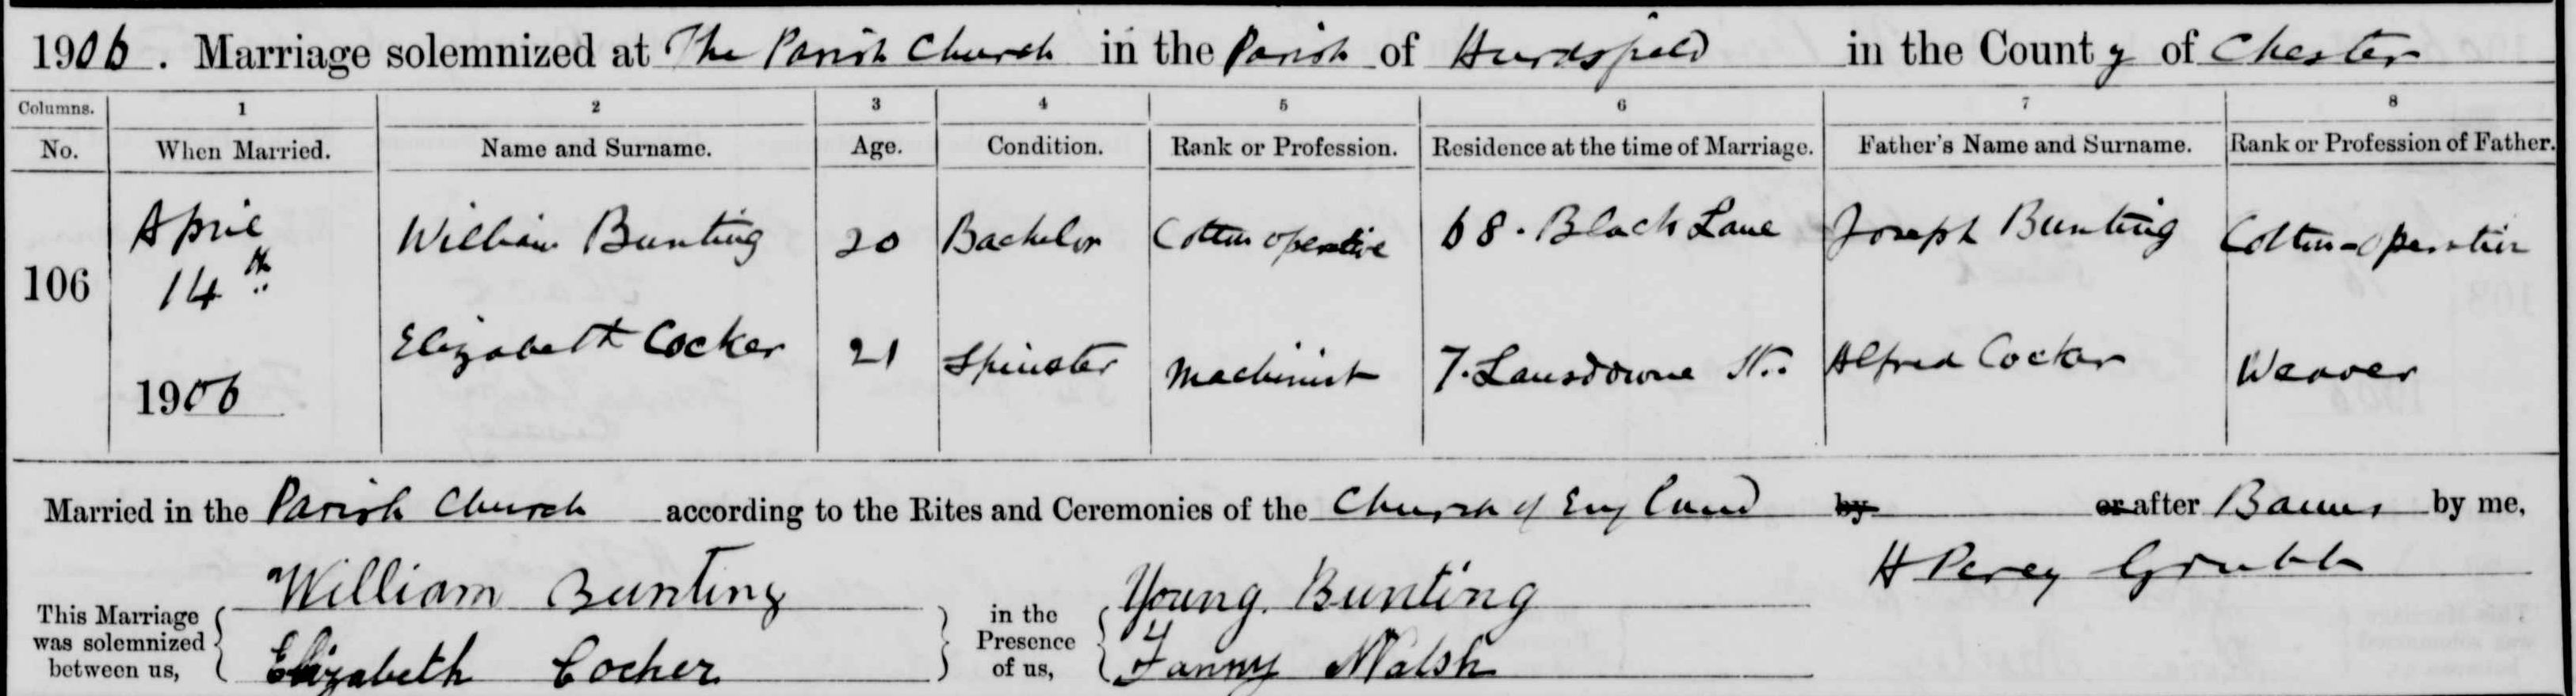 1906. Marriage solemnized at The Parish Church in the Parish of Hurdsfield in the County of Chester
Columns. 1 2 3 4 5 6 7 8
No. When Married. Name and Surname. Age. Condition. Rank or Profession. Residence at the time of Marriage. Father's Name and Surname. Rank or Profession of Father.
106 April 14th 1906
William Bunting 20 Bachelor Cotton operative 68. Black Lane Joseph Bunting Cotton-operative
Elizabeth Cocker 21 Spinster Machinist 7. Lansdowne St. Alfred Cocker Weaver
Married in the Parish Church according to the Rites and Ceremonies of the Church of England by or after Banns by me,
William Bunting Young Bunting H Percy Grubb
This Marriage was solemnized between us, in the Presence of us,
Elizabeth Cocker Fanny Walsh